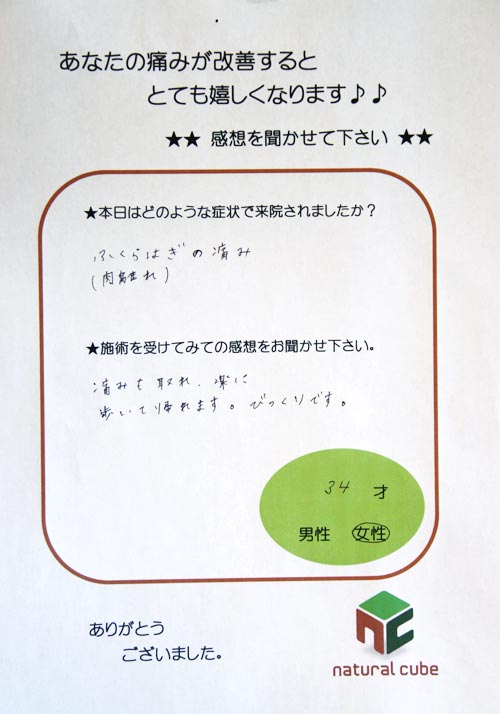 あなたの痛みが改善すると
とても嬉しくなります♪♪
★★ 感想を聞かせて下さい ★★
★本日はどのような症状で来院されましたか？
ふくらはぎの痛み
(肉離れ)
★施術を受けてみての感想をお聞かせ下さい。
痛みも取れ、楽に
歩いて帰れます。びっくりです。
34 才
男性 女性
ありがとう
ございました。
nc
natural cube